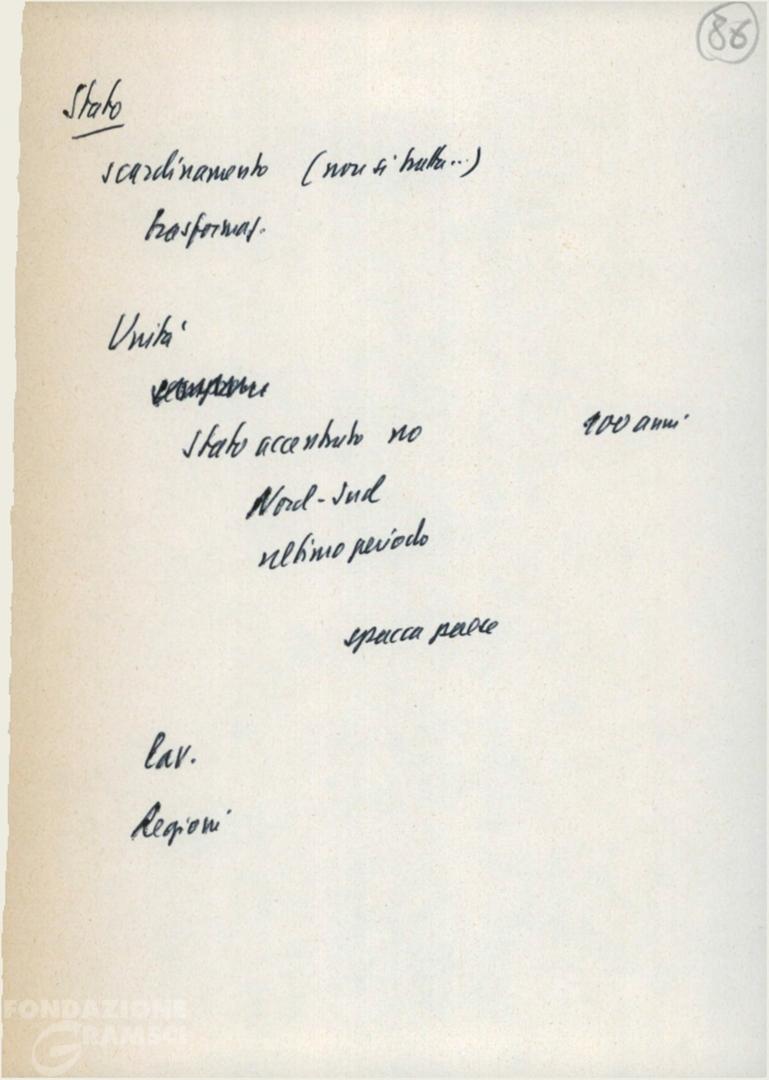 86
Stato
scardinamento (non si tratta...)
trasformaz.
Unità
Stato accentrato no 100 anni
Nord-Sud
ultimo periodo
spacca paese
Lav.
Regioni
FONDAZIONE
GRAMSCI